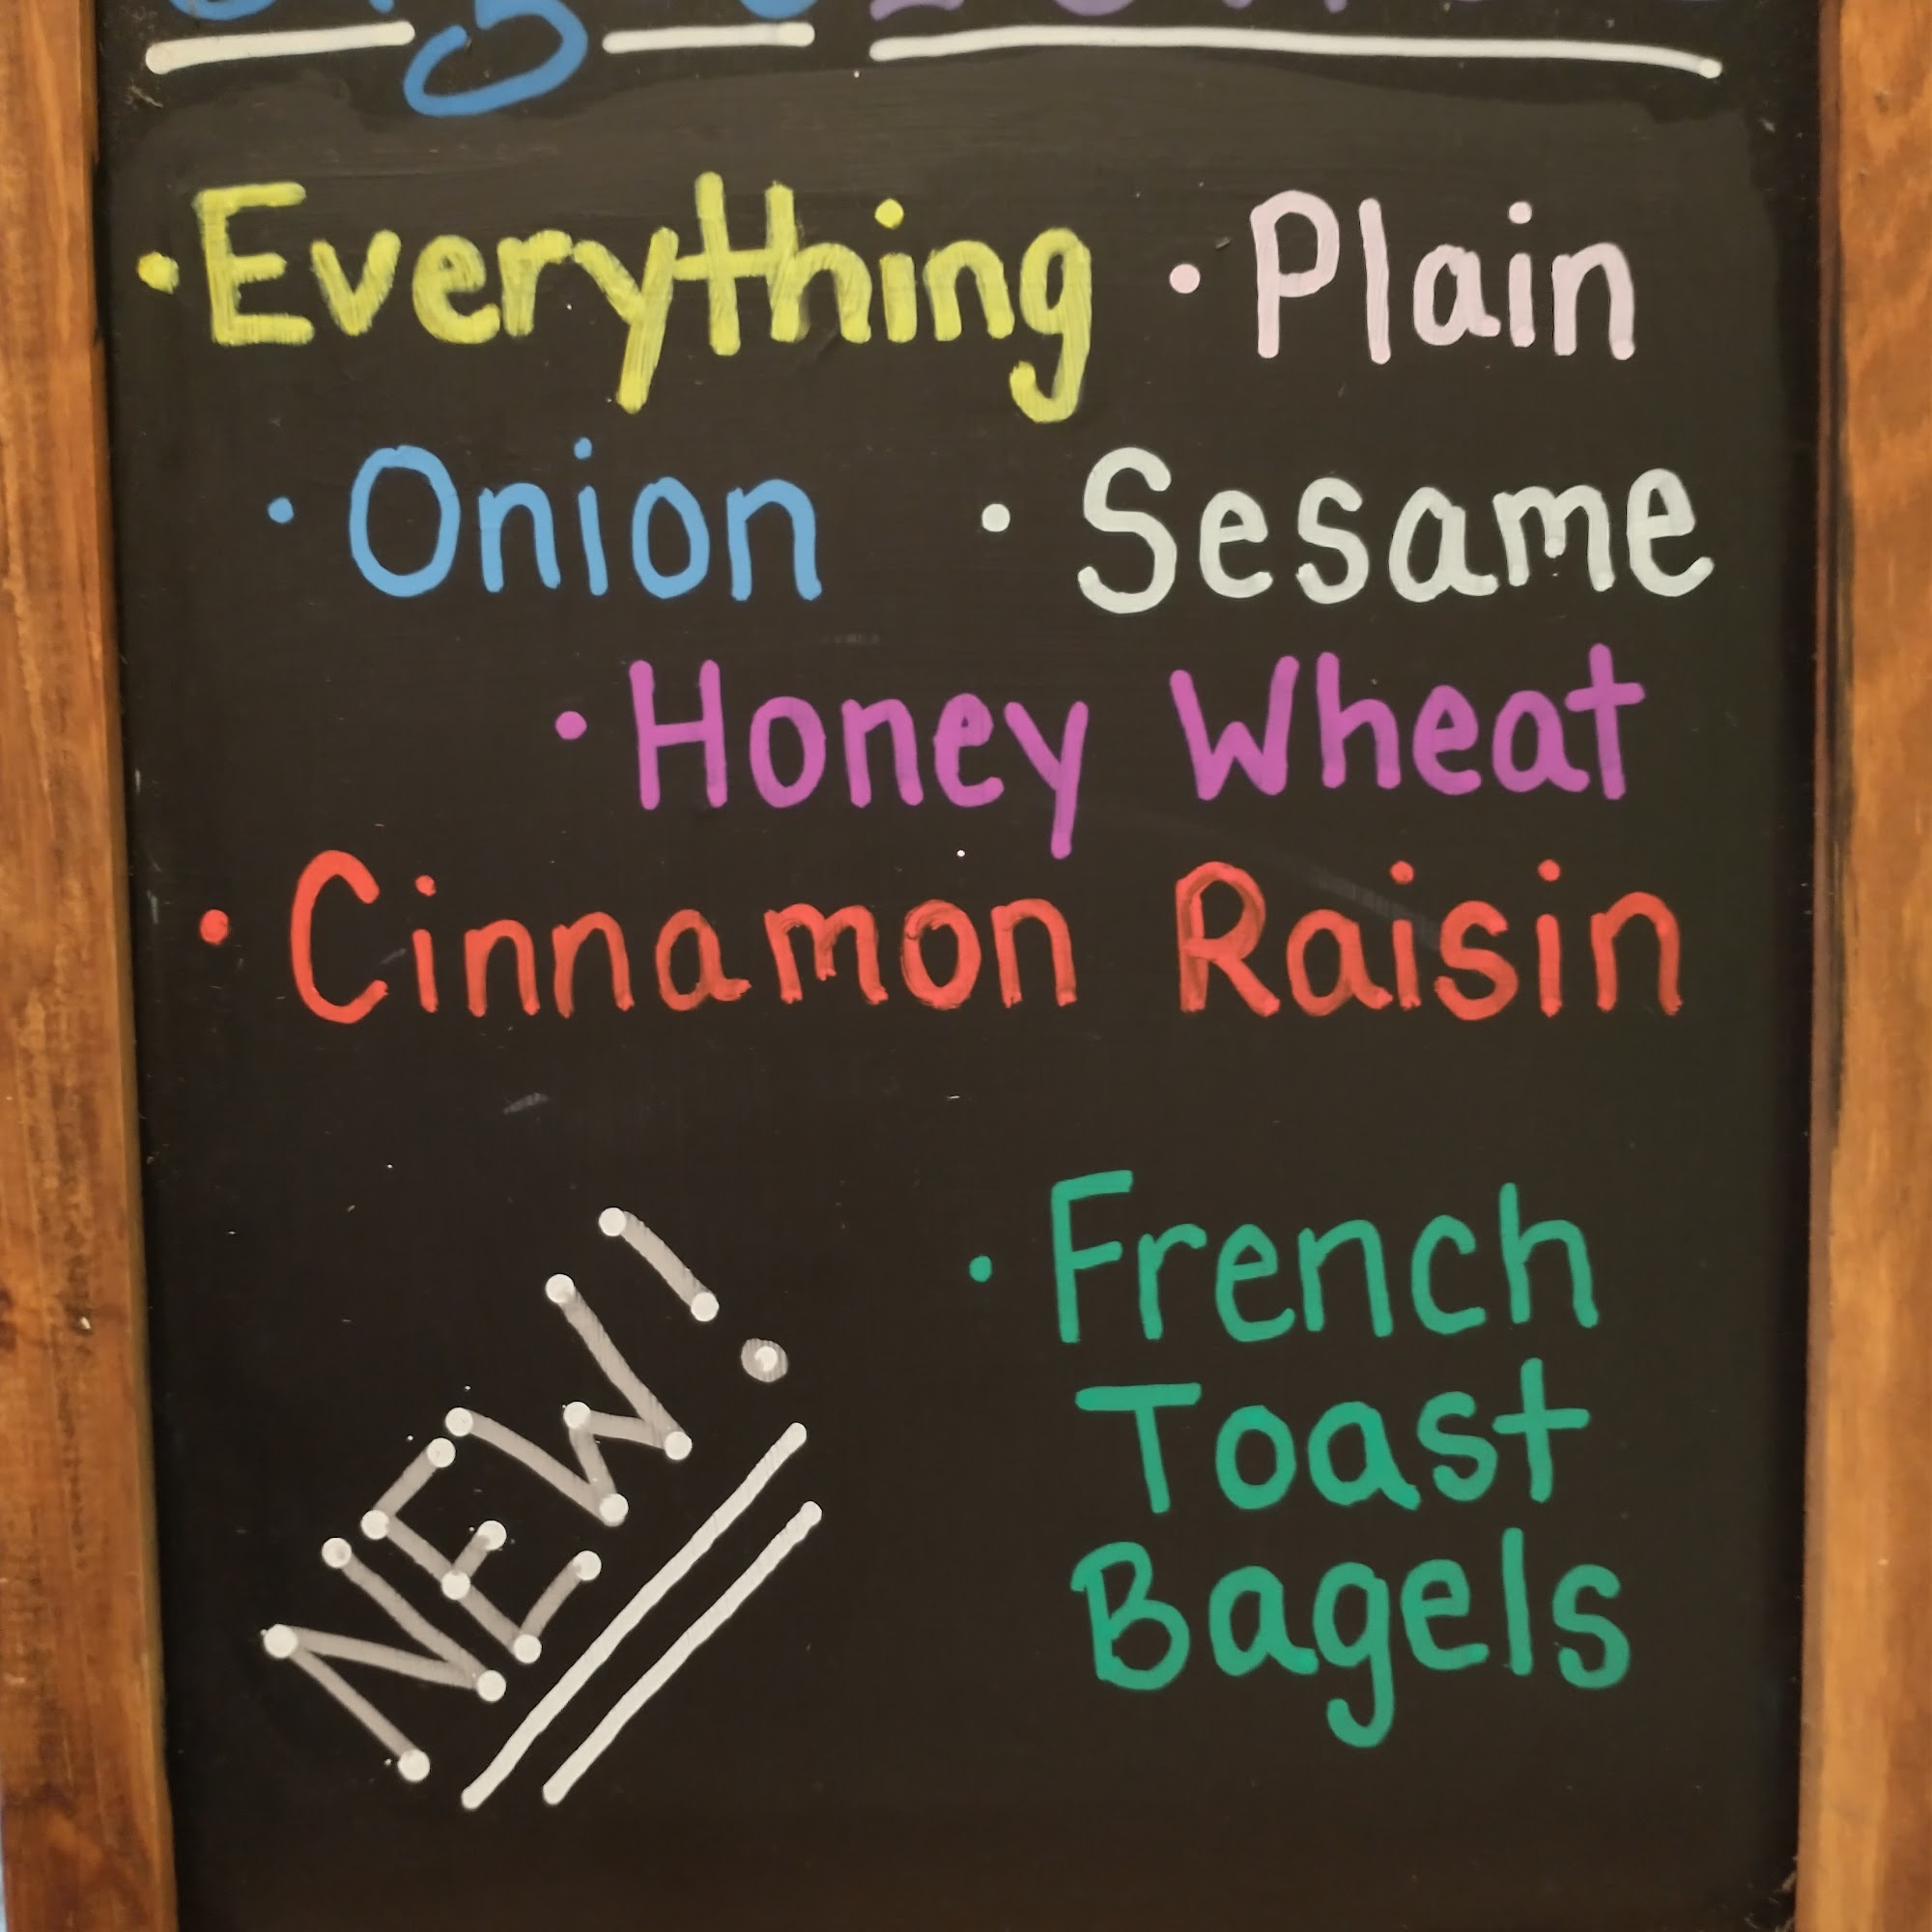 ·Everything ·Plain
·Onion ·Sesame
·Honey Wheat
·Cinnamon Raisin
NEW!
·French
Toast
Bagels